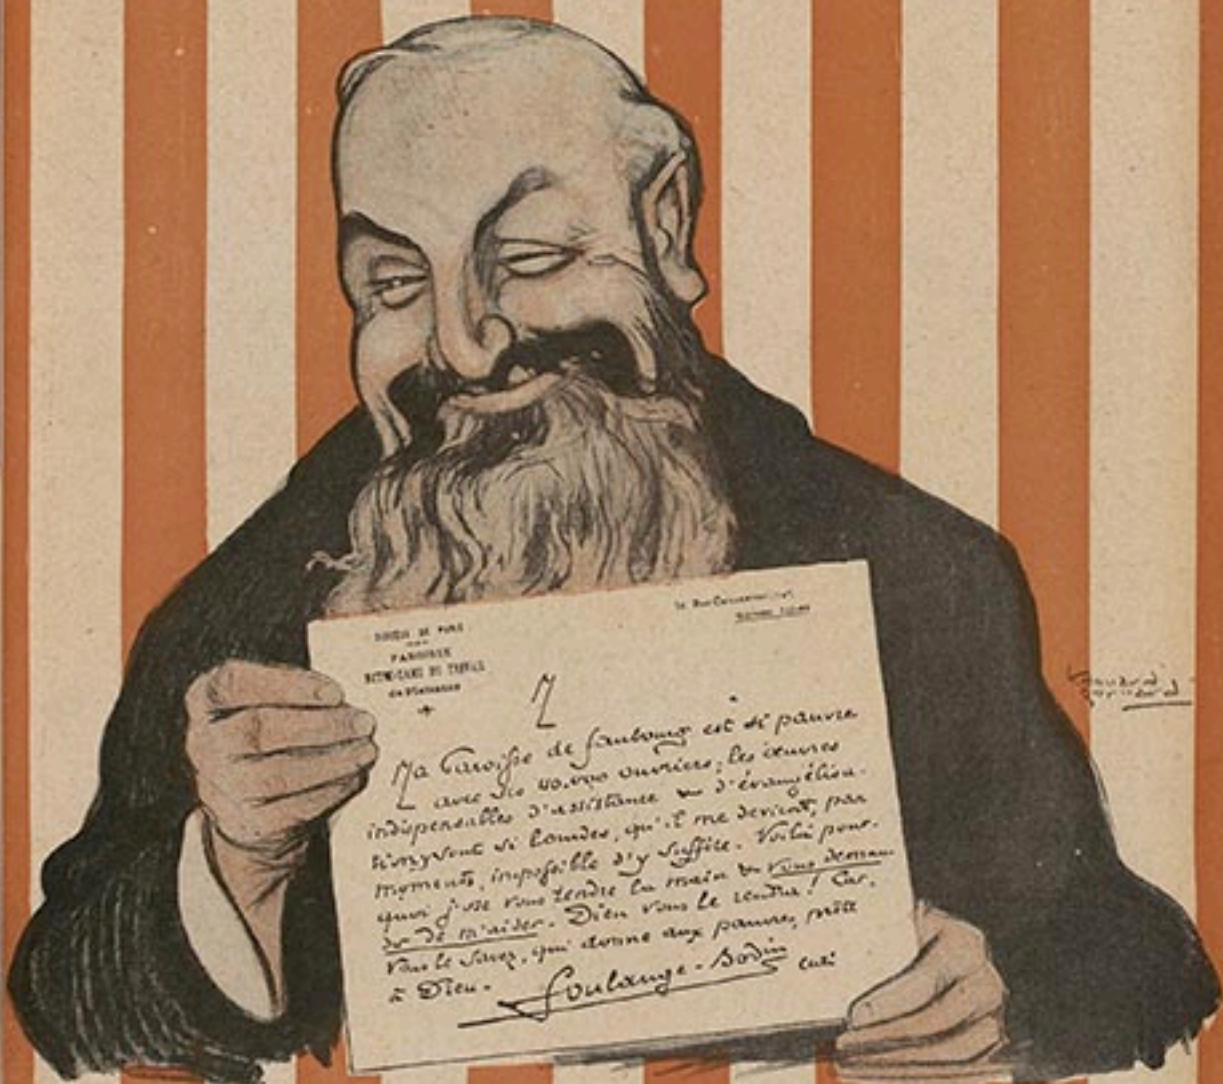 DIOCÈSE DE PARIS
PAROISSE
NOTRE-DAME DU TRAVAIL
de Plaisance
M
Ma Paroisse de faubourg est si pauvre
avec ses 40.000 ouvriers; les œuvres
indispensables d'assistance et d'évangélisa-
tion y sont si lourdes, qu'il me devient, par
moments, impossible d'y suffire. Voilà pour-
quoi j'ose vous tendre la main et vous deman-
der de m'aider. Dieu vous le rendra! Car,
vous le savez, qui donne aux pauvres, prête
à Dieu.
Soulange-Bodin
curé